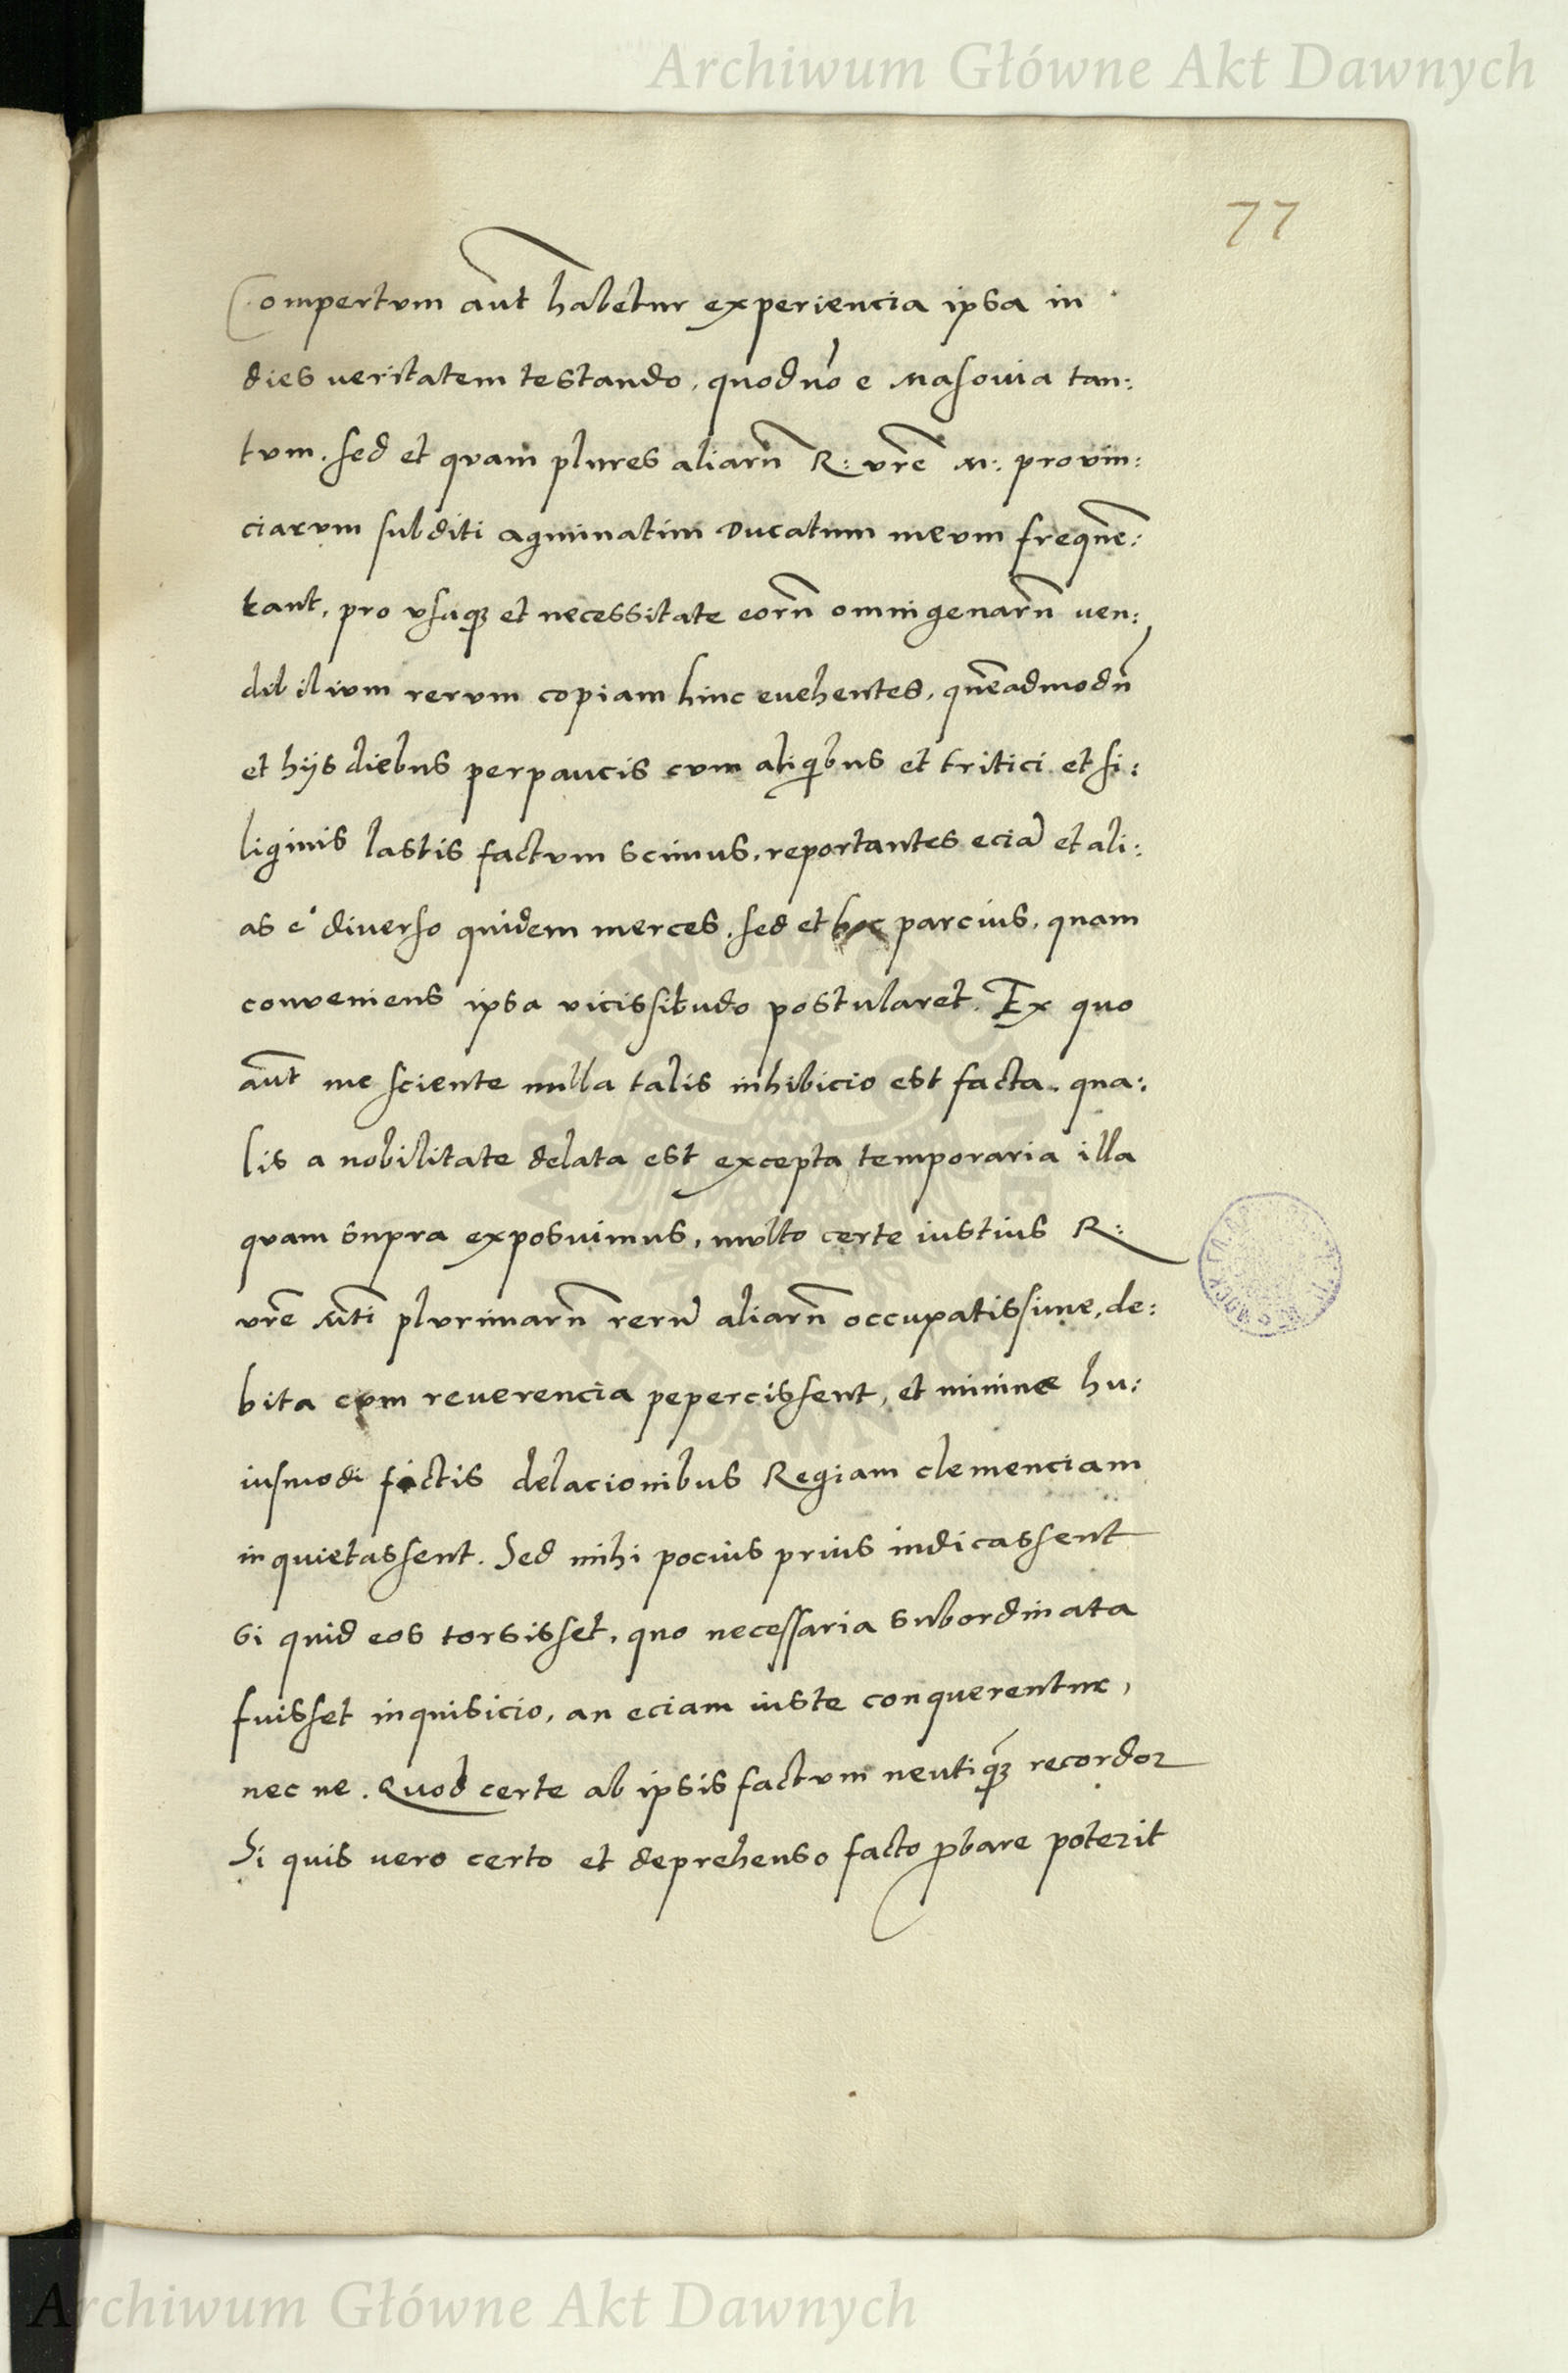 Archiwum Główne Akt Dawnych
77
Compertvm aut̃ habetur experiencia ipsa in
dies veritatem testando, quod nõ e Masouia tan:
tvm. sed et qvam plures aliarũ R: vrẽ M: provin:
ciarvm subditi agminatim Ducatum mevm frequẽ:
tant, pro vsuqꝫ et necessitate eorũ omnigenarũ ven:
dibilivm rervm copiam hinc euehentes, quẽadmodũ
et hijs diebus perpaucis cvm aliqͥbus et tritici et si:
liginis lastis factvm scimus, reportantes eciã et ali:
as e diuerso quidem merces, sed et hoc parcius, quam
conveniens ipsa vicissitudo postularet. Ex quo
aut̃ me sciente nulla talis inhibicio est facta, qua:
lis a nobilitate delata est excepta temporaria illa
qvam supra exposuimus, mvlto certe iustius R:
vrẽ Mti̇̃ plvrimarũ rerũ aliarũ occupatissime, de:
bita cvm reuerencia pepercissent, et minime hu:
iusmodi fictis delacionibus Regiam clemenciam
inquietassent. Sed mihi pocius prius indicassent
si quid eos torsisset, quo necessaria subordinata
fuisset inquisicio, an eciam iuste conquerentur,
nec ne. Quod certe ab ipsis factvm neutiqͣꝫ recordor
Si quis vero certo et deprehenso facto ꝓbare poterit
Archiwum Główne Akt Dawnych